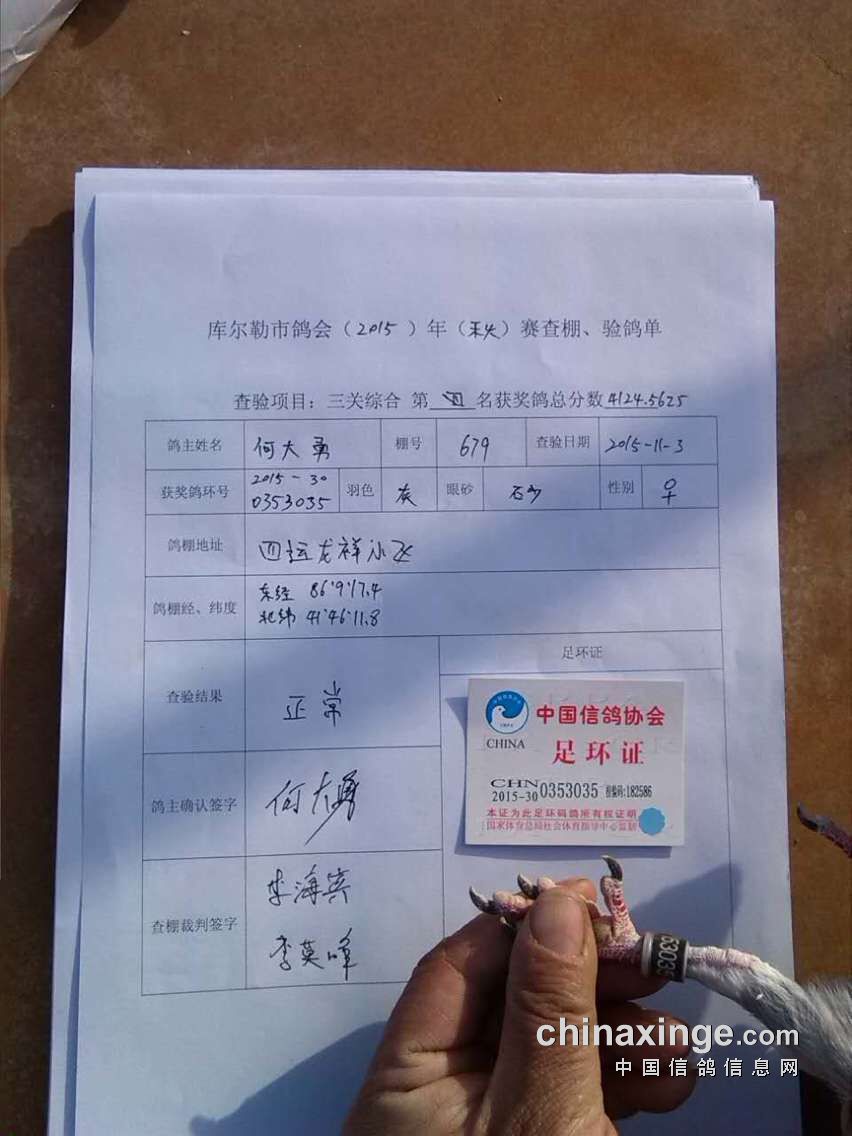 库尔勒市鸽会（2015）年（秋）赛查棚、验鸽单
查验项目：三关综合 第 四 名获奖鸽总分数4124.5625
鸽主姓名 何大勇 棚号 679 查验日期 2015-11-3
获奖鸽环号 2015-30 0353035 羽色 灰 眼砂 石沙 性别 ♀
鸽棚地址 四运龙祥小区
鸽棚经、纬度 东经 86°9'17.4
北纬 41°46'11.8
足环证
查验结果 正常
鸽主确认签字 何大勇
查棚裁判签字 李海宾
李英峰
中国信鸽协会
CHINA
足环证
CHN
2015-30 0353035 校验码:182586
本证为此足环码鸽所有权证明
国家体育总局社会体育指导中心监制
chinaxinge.com
中国信鸽信息网